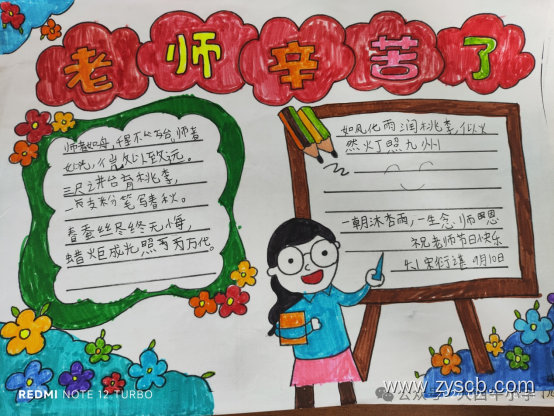 老师辛苦了
师者如光,微以致远。
三尺讲台育桃李,
一支粉笔写春秋。
春蚕丝尽终无悔,
蜡炬成光照万代。
如风化雨润桃李,似火
燃灯照九州
一朝沐杏雨,一生念师恩
祝老师节日快乐
9月10日
REDMI NOTE 12 TURBO
公众号
www.zyscb.com